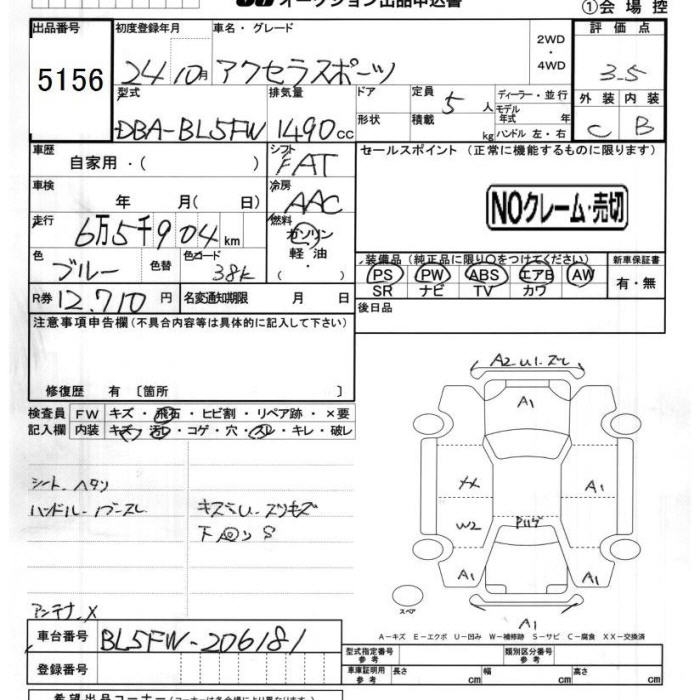 オークション出品申込書
①会場控
出品番号
5156
初度登録年月
24 10月
車名・グレード
アクセラスポーツ
2WD
・
4WD
評価点
3.5
型式
DBA-BL5FW
排気量
1490cc
ドア
形状
定員
5人
積載
kg
ディーラー・並行
モデル年式 年
ハンドル 左・右
外装
内装
C
B
車歴
自家用・( )
シフト
FAT
セールスポイント (正常に機能するものに限ります)
車検
年 月( 日)
冷房
AAC
NOクレーム・売切
走行
6万5千904km
燃料
ガソリン
軽油
・( )
色
ブルー
色替
色コード
38K
装備品 (純正品に限り○をつけてください)
新車保証書
PS PW ABS エアB AW
SR ナビ TV カワ
有・無
R券
12,710円
名変通知期限
月 日
後日品
注意事項申告欄 (不具合内容等は具体的に記入して下さい)
修復歴 有 〔箇所 〕
検査員
記入欄
FW キズ・飛石・ヒビ割・リペア跡・×要
内装 キズ・汚レ・コゲ・穴・スレ・キレ・破レ
シート、ヘタリ
ハンドル
アンテナ、X
A2
A1
A1
W2
A1
A1
A1
スペア
A1
A-キズ E-エクボ U-凹み W-補修跡 S-サビ C-腐食 XX-交換済
車台番号
BL5FW-206181
登録番号
型式指定番号
参考
類別区分番号
参考
車庫証明用
参考
長さ cm
幅 cm
高さ cm
希望出品コーナー